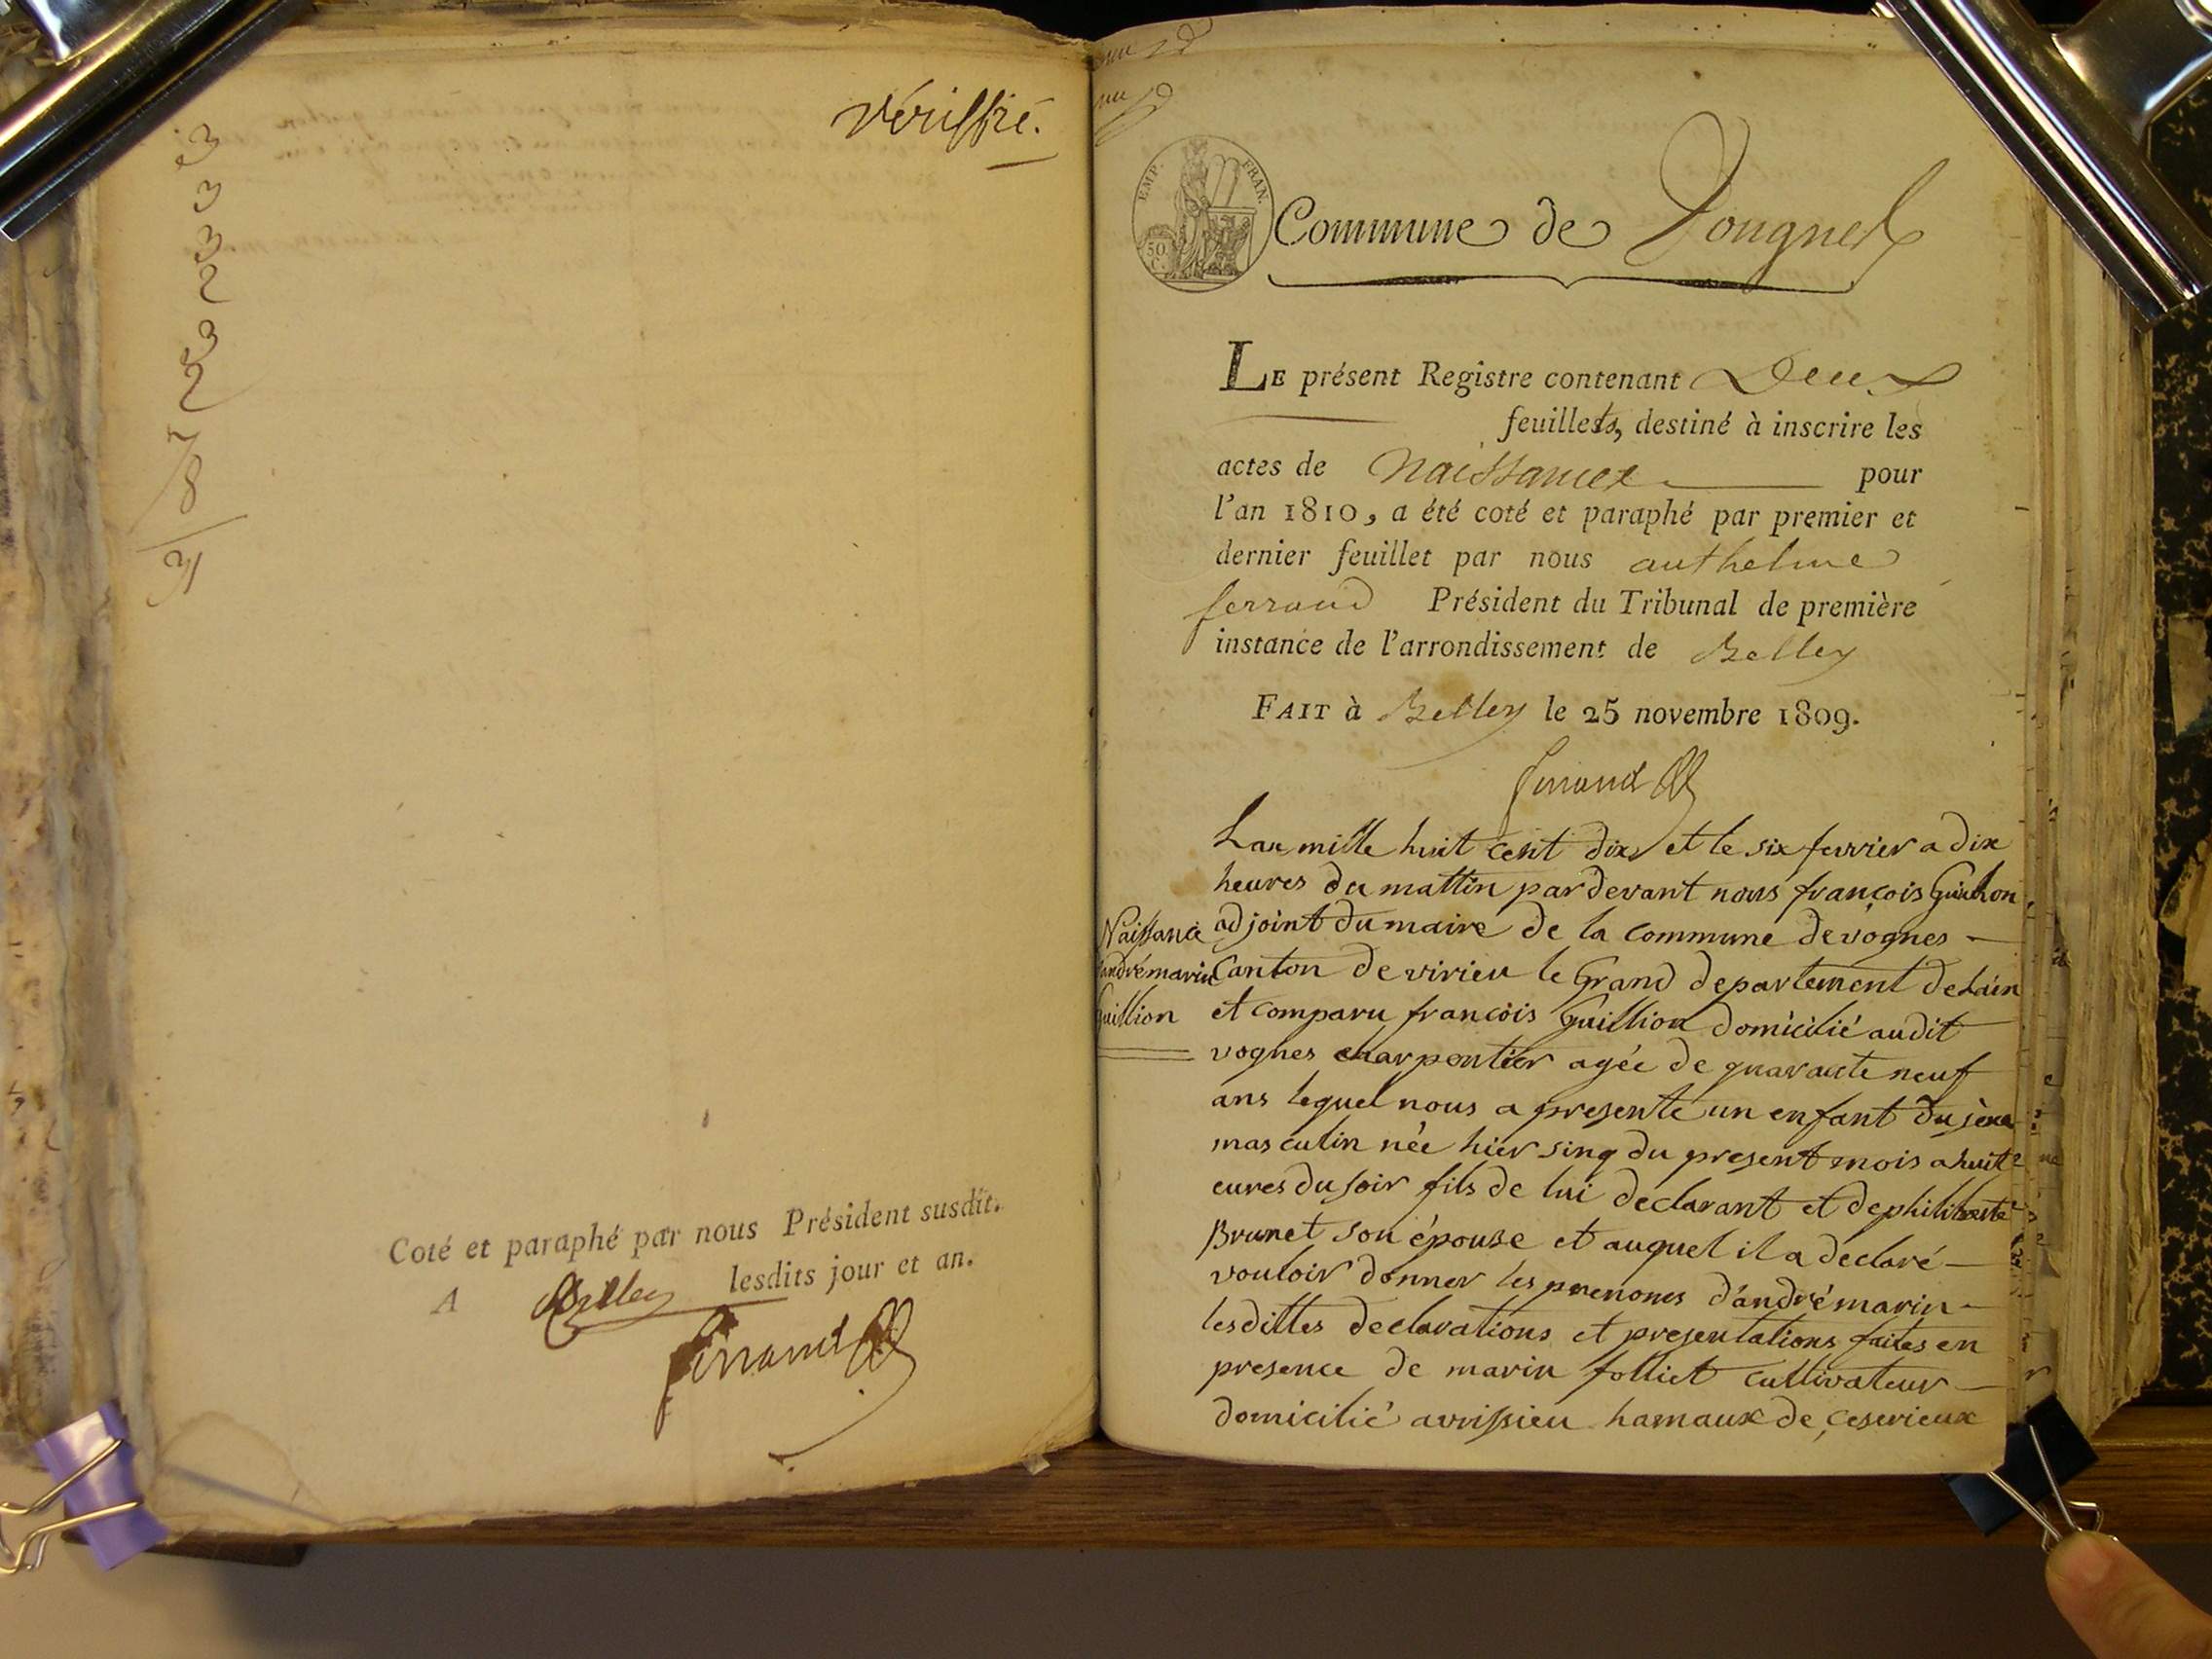 vériffié.
3
3
3
2
3
2
8
Coté et paraphé par nous Président susdit.
A Belley lesdits jour et an.
ferrand
EMP. FRAN.
50 C.
Commune de Vognes
LE présent Registre contenant Deux
feuillets, destiné à inscrire les
actes de Naissances pour
l'an 1810, a été coté et paraphé par premier et
dernier feuillet par nous anthelme
ferrand Président du Tribunal de première
instance de l'arrondissement de Belley
FAIT à Belley le 25 novembre 1809.
ferrand
Naissance
dandrémarin
Guillion
Lan mille huit cent dix et le six fevrier a dix
heures du mattin par devant nous françois Guichon
adjoint du maire de la commune de vognes
Canton de virieu le Grand departement de Lain
et comparu francois Guillion domicilié audit
vognes charpentier agée de quarante neuf
ans lequel nous a presenté un enfant du sexe
masculin née hier sinq du present mois a huit
eures du soir fils de lui declarant et de philiberte
Brunet son épouse et auquel il a declaré
vouloir donner les prenoms d'andrémarin
lesdittes declarations et presentations faites en
presence de marin folliet cultivateur
domicilié avrissieu hamaux de ceserieux